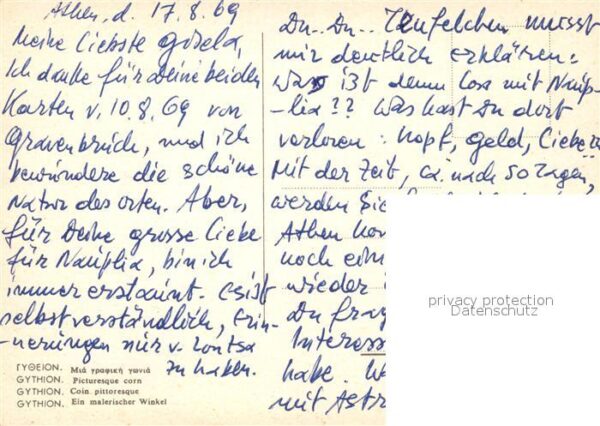 Athen, d. 17.8.69
Meine Liebste Gisela,
Ich danke für Deine beiden
Karten v. 10.8.69 von
Gravenbruch, und ich
bewundere die schöne
Natur des orten. Aber,
für Deine grosse Liebe
für Nauplia, bin ich
immer erstaunt. Es ist
selbstverständlich, Erin-
-nerungen nur v.
zu haben.
ΓΥΘΕΙΟΝ. Μιά γραφική γωνιά
GYTHION. Picturesque corn
GYTHION. Coin pittoresque
GYTHION. Ein malerischer Winkel
Du.. Du.. Teufelchen musst
mir deutlich erklären:
Was ist denn los mit Naup-
-lia?? Was hast Du dort
verloren: Kopf, Geld, Liebe??
Mit der Zeit, ca. nach 50 Tagen,
werden Sie
Athen
noch ein
wieder
Du
Interess
habe.
mit Astr
privacy protection
Datenschutz